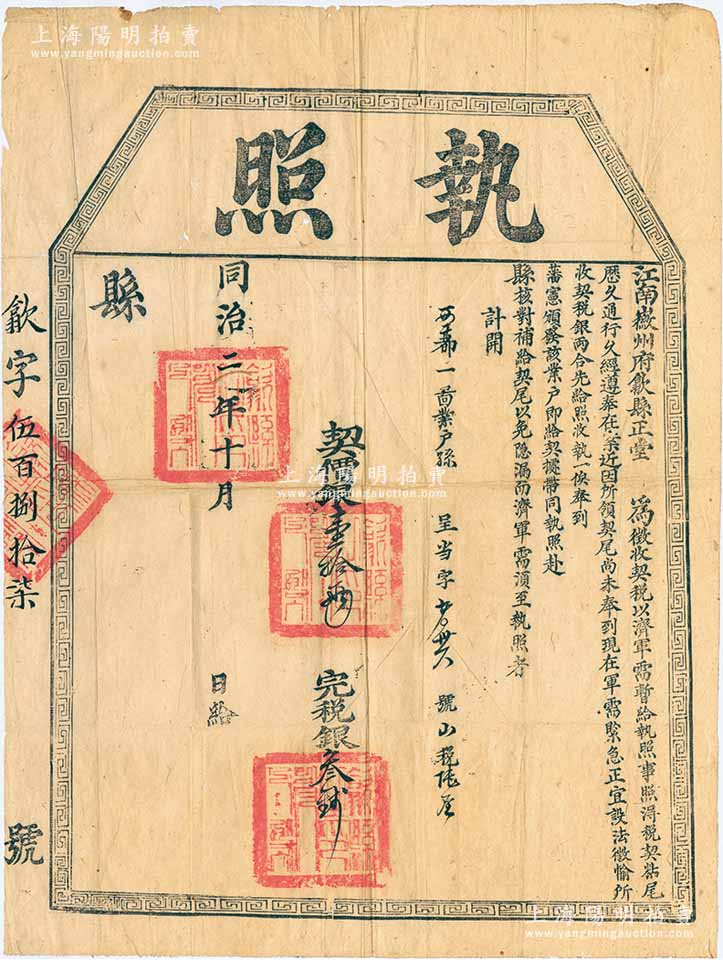 上海陽明拍賣
www.yangmingauction.com
執照
江南徽州府歙縣正堂 為徵收契稅以濟軍需暫給執照事照得稅契粘尾
歷久通行久經遵奉在案近因所領契尾尚未奉到現在軍需緊急正宜設法徵愉所
收契稅銀兩合先給照收執一俟奉到
藩憲頒發該業户即將契據帶同執照赴
縣核對補給契尾以免隐漏而濟軍需須至執照者
計開
都一啚業户孫 呈当字 號山稅
契價銀壹拾兩 完稅銀叁錢
同治二年十月 日給
縣
歙字伍百捌拾柒 號
上海陽明拍賣
www.yangmingauction.com